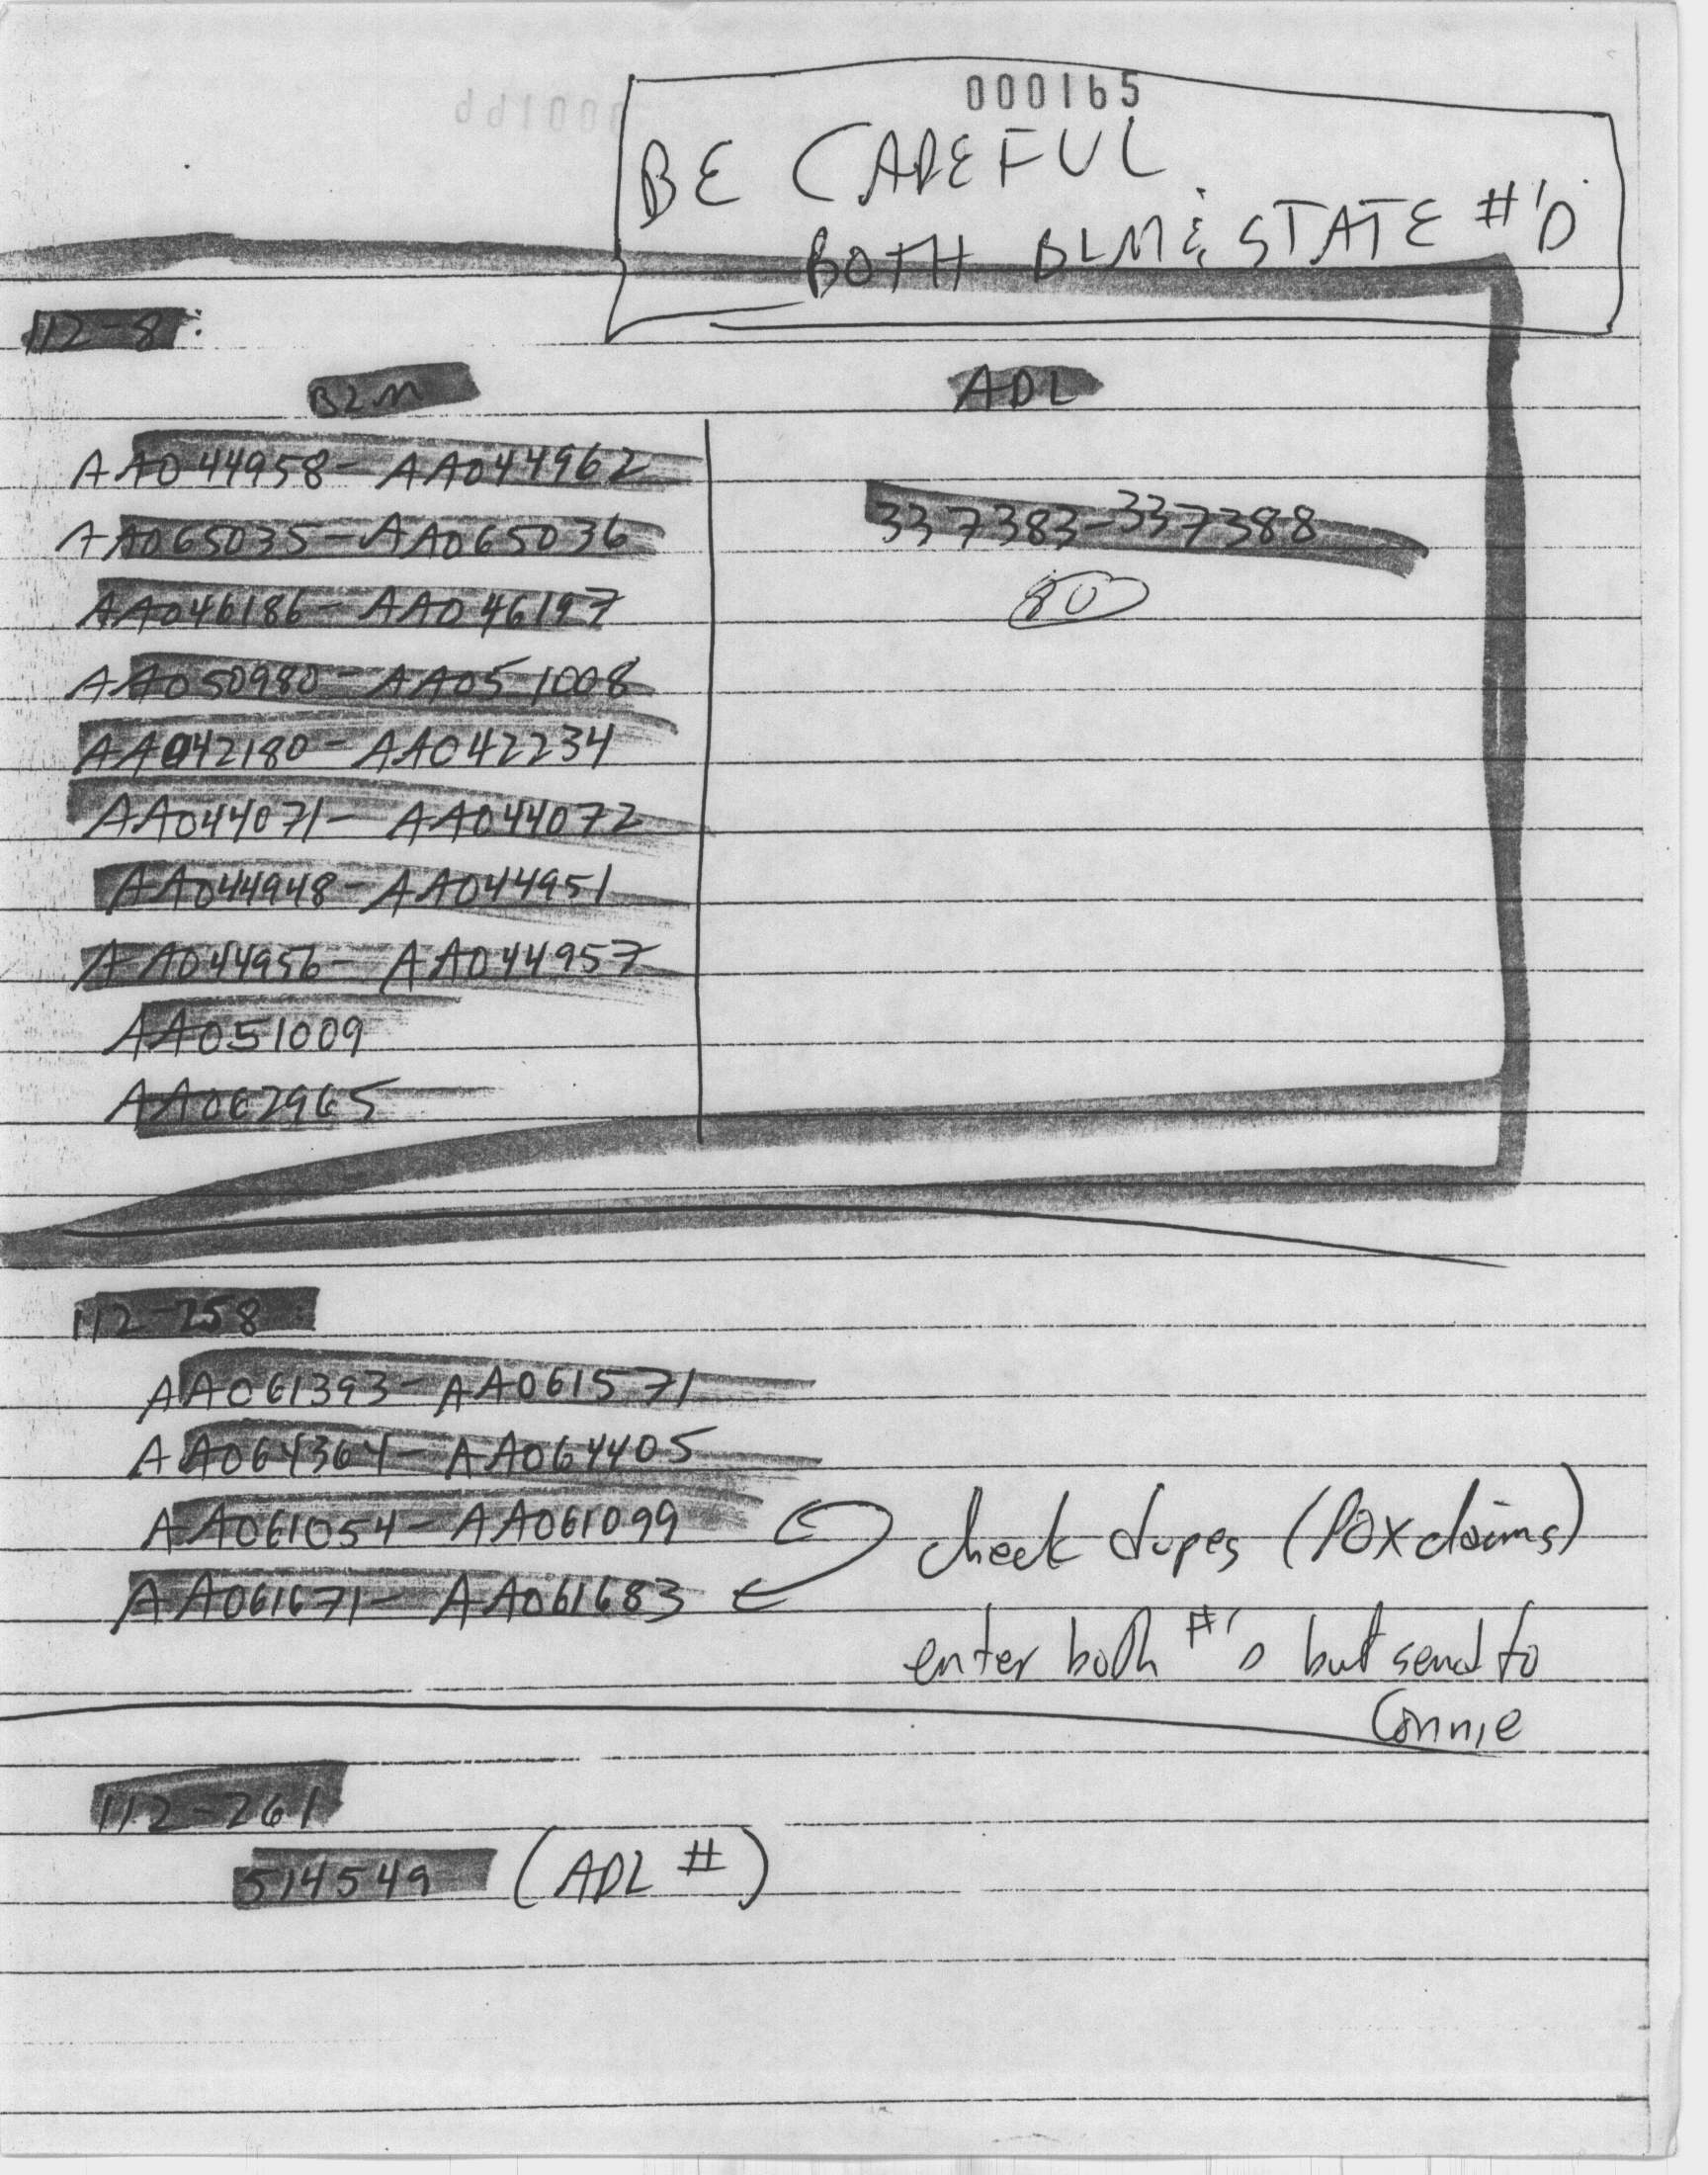 000165
BE CAREFUL
BOTH BLM & STATE #'s
112-8:
BLM ADL
AA044958-AA044962
337383-337388
AA065035-AA065036
AA046186-AA046197
80
AA050980-AA051008
AA042180-AA042234
AA044071-AA044072
AA044948-AA044951
AA044956-AA044957
AA051009
AA062965
112-258:
AA061393-AA061571
AA064364-AA064405
AA061054-AA061099
check dupes (POX claims)
AA061671-AA061683
enter both #'s but send to
Connie
112-261
514549 (ADL #)